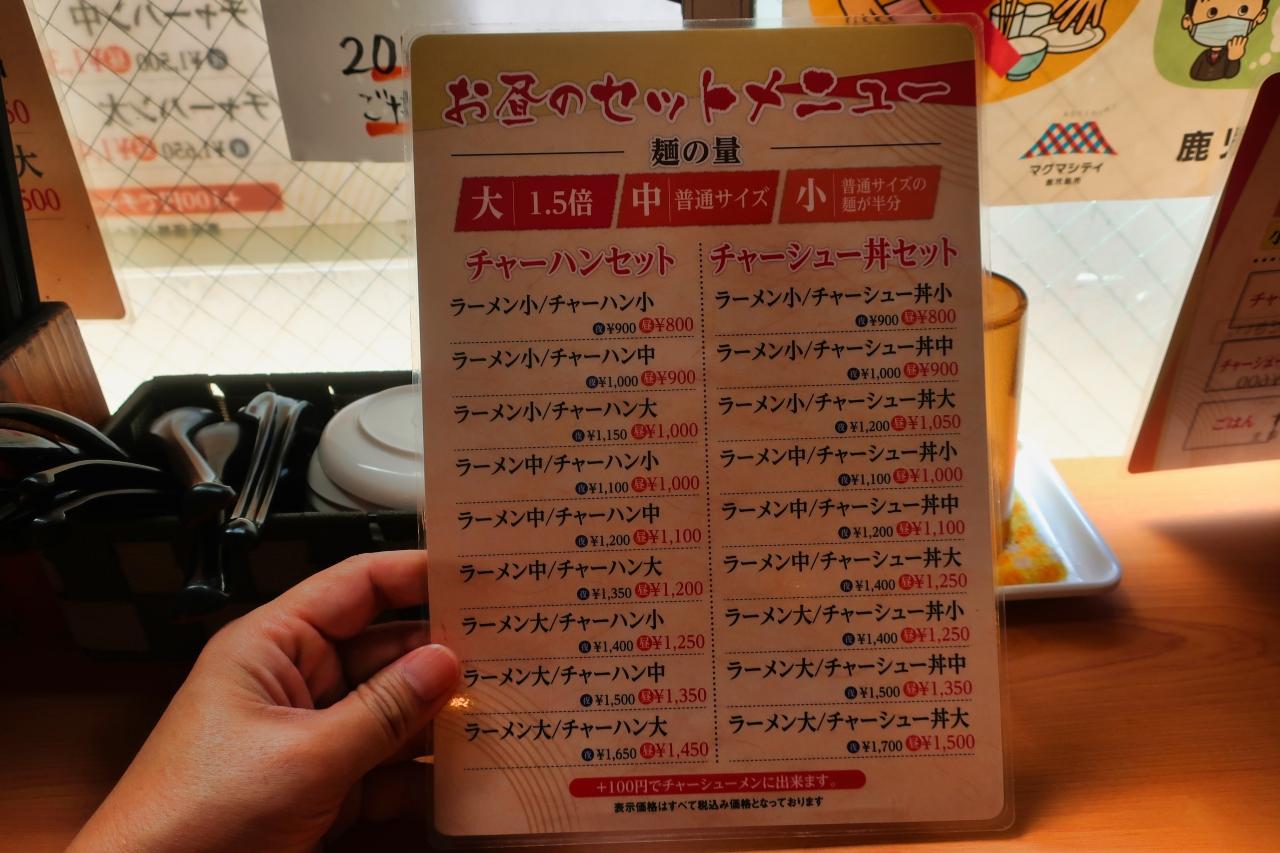 お昼のセットメニュー
麺の量
大 1.5倍 中 普通サイズ 小 普通サイズの麺が半分
チャーハンセット
ラーメン小/チャーハン小
夜¥900 昼¥800
ラーメン小/チャーハン中
夜¥1,000 昼¥900
ラーメン小/チャーハン大
夜¥1,150 昼¥1,000
ラーメン中/チャーハン小
夜¥1,100 昼¥1,000
ラーメン中/チャーハン中
夜¥1,200 昼¥1,100
ラーメン中/チャーハン大
夜¥1,350 昼¥1,200
ラーメン大/チャーハン小
夜¥1,400 昼¥1,250
ラーメン大/チャーハン中
夜¥1,500 昼¥1,350
ラーメン大/チャーハン大
夜¥1,650 昼¥1,450
チャーシュー丼セット
ラーメン小/チャーシュー丼小
夜¥900 昼¥800
ラーメン小/チャーシュー丼中
夜¥1,000 昼¥900
ラーメン小/チャーシュー丼大
夜¥1,200 昼¥1,050
ラーメン中/チャーシュー丼小
夜¥1,100 昼¥1,000
ラーメン中/チャーシュー丼中
夜¥1,200 昼¥1,100
ラーメン中/チャーシュー丼大
夜¥1,400 昼¥1,250
ラーメン大/チャーシュー丼小
夜¥1,400 昼¥1,250
ラーメン大/チャーシュー丼中
夜¥1,500 昼¥1,350
ラーメン大/チャーシュー丼大
夜¥1,700 昼¥1,500
+100円でチャーシューメンに出来ます。
表示価格はすべて税込み価格となっております
マグマシティ
鹿児島市
鹿
20
大
500
ごはん